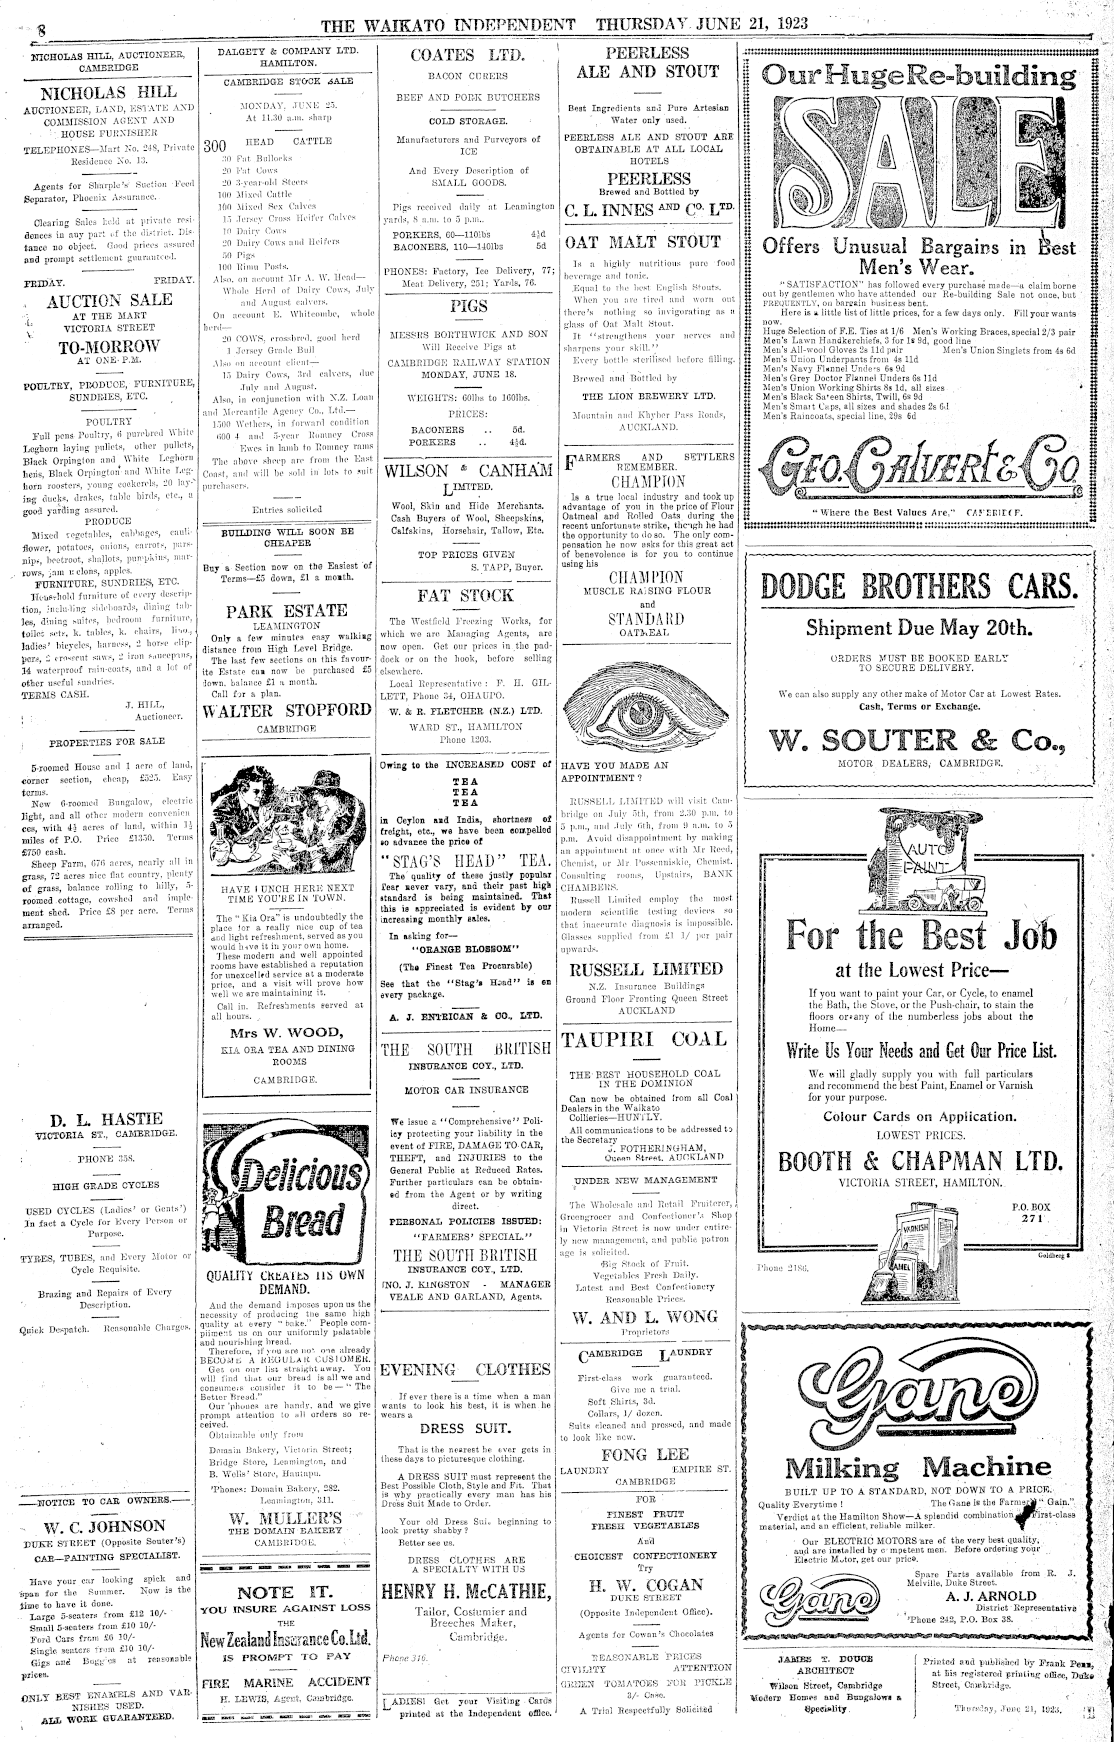 8
THE WAIKATO INDEPENDENT THURSDAY JUNE 21, 1923
NICHOLAS HILL, AUCTIONEER,
CAMBRIDGE
NICHOLAS HILL
AUCTIONEER, LAND, ESTATE AND
COMMISSION AGENT AND
HOUSE FURNISHER
TELEPHONES—Mart No. 248, Private
Residence No. 13.
Agents for Sharple's Suction Feed
Separator, Phoenix Assurance.
Clearing Sales held at private resi-
dences in any part of the district. Dis-
tance no object. Good prices assured
and prompt settlement guaranteed.
FRIDAY. FRIDAY.
AUCTION SALE
AT THE MART
VICTORIA STREET
TO-MORROW
AT ONE P.M.
POULTRY, PRODUCE, FURNITURE,
SUNDRIES, ETC.
POULTRY
Full pens Poultry, 6 purebred White
Leghorn laying pullets, other pullets,
Black Orpington and White Leghorn
hens, Black Orpington and White Leg-
horn roosters, young cockerels, 20 lay-
ing ducks, drakes, table birds, etc., a
good yarding assured.
PRODUCE
Mixed vegetables, cabbages, cauli-
flower, potatoes, onions, carrots, pars-
nips, beetroot, shallots, pumpkins, mar-
rows, jam melons, apples.
FURNITURE, SUNDRIES, ETC.
Household furniture of every descrip-
tion, including sideboards, dining tab-
les, dining suites, bedroom furniture,
toilet sets, k. tables, k. chairs, lino.,
ladies' bicycles, harness, 2 horse clip-
pers, 2 crescent saws, 2 iron saucepans,
14 waterproof rain-coats, and a lot of
other useful sundries.
TERMS CASH.
J. HILL,
Auctioneer.
PROPERTIES FOR SALE
5-roomed House and 1 acre of land,
corner section, cheap, £525. Easy
terms.
New 6-roomed Bungalow, electric
light, and all other modern convenien
ces, with 4½ acres of land, within 1½
miles of P.O. Price £1350. Terms
£750 cash.
Sheep Farm, 676 acres, nearly all in
grass, 72 acres nice flat country, plenty
of grass, balance rolling to hilly, 5-
roomed cottage, cowshed and imple-
ment shed. Price £8 per acre. Terms
arranged.
D. L. HASTIE
VICTORIA ST., CAMBRIDGE.
PHONE 358.
HIGH GRADE CYCLES
USED CYCLES (Ladies' or Gents')
In fact a Cycle for Every Person or
Purpose.
TYRES, TUBES, and Every Motor or
Cycle Requisite.
Brazing and Repairs of Every
Description.
Quick Despatch. Reasonable Charges.
—NOTICE TO CAR OWNERS.—
W. C. JOHNSON
DUKE STREET (Opposite Souter's)
CAR—PAINTING SPECIALIST.
Have your car looking spick and
span for the Summer. Now is the
time to have it done.
Large 5-seaters from £12 10/-
Small 5-seaters from £10 10/-
Ford Cars from £6 10/-
Single seaters from £10 10/-
Gigs and Buggies at reasonable
prices.
ONLY BEST ENAMELS AND VAR-
NISHES USED.
ALL WORK GUARANTEED.
DALGETY & COMPANY LTD.
HAMILTON.
CAMBRIDGE STOCK SALE
MONDAY, JUNE 25.
At 11.30 a.m. sharp
300 HEAD CATTLE
30 Fat Bullocks
20 Fat Cows
20 3-year-old Steers
100 Mixed Cattle
100 Mixed Sex Calves
15 Jersey Cross Heifer Calves
10 Dairy Cows
20 Dairy Cows and Heifers
50 Pigs
100 Rimu Posts.
Also, on account Mr A. W. Head—
Whole Herd of Dairy Cows, July
and August calvers.
On account E. Whitcombe, whole
herd—
20 COWS, crossbred, good herd
1 Jersey Grade Bull
Also on account client—
15 Dairy Cows, 3rd calvers, due
July and August.
Also, in conjunction with N.Z. Loan
and Mercantile Agency Co., Ltd.—
1500 Wethers, in forward condition
600 4 and 5-year Romney Cross
Ewes in lamb to Romney rams
The above sheep are from the East
Coast, and will be sold in lots to suit
purchasers.
Entries solicited
BUILDING WILL SOON BE
CHEAPER
Buy a Section now on the Easiest of
Terms—£5 down, £1 a month.
PARK ESTATE
LEAMINGTON
Only a few minutes easy walking
distance from High Level Bridge.
The last few sections on this favour-
ite Estate can now be purchased £5
down, balance £1 a month.
Call for a plan.
WALTER STOPFORD
CAMBRIDGE
HAVE LUNCH HERE NEXT
TIME YOU'RE IN TOWN.
The "Kia Ora" is undoubtedly the
place for a really nice cup of tea
and light refreshment, served as you
would have it in your own home.
These modern and well appointed
rooms have established a reputation
for unexcelled service at a moderate
price, and a visit will prove how
well we are maintaining it.
Call in. Refreshments served at
all hours.
Mrs W. WOOD,
KIA ORA TEA AND DINING
ROOMS
CAMBRIDGE.
Delicious
Bread
QUALITY CREATES ITS OWN
DEMAND.
And the demand imposes upon us the
necessity of producing the same high
quality at every "bake." People com-
pliment us on our uniformly palatable
and nourishing bread.
Therefore, if you are not one already
BECOME A REGULAR CUSTOMER.
Get on our list straight away. You
will find that our bread is all we and
consumers consider it to be—"The
Better Bread."
Our 'phones are handy, and we give
prompt attention to all orders so re-
ceived.
Obtainable only from
Domain Bakery, Victoria Street;
Bridge Store, Leamington, and
B. Wells' Store, Hautapu.
'Phones: Domain Bakery, 282.
Leamington, 311.
W. MULLER'S
THE DOMAIN BAKERY
CAMBRIDGE.
NOTE IT.
YOU INSURE AGAINST LOSS
THE
New Zealand Insurance Co. Ltd.
IS PROMPT TO PAY
FIRE MARINE ACCIDENT
H. LEWIS, Agent, Cambridge.
COATES LTD.
BACON CURERS
BEEF AND PORK BUTCHERS
COLD STORAGE.
Manufacturers and Purveyors of
ICE
And Every Description of
SMALL GOODS.
Pigs received daily at Leamington
yards, 8 a.m. to 5 p.m..
PORKERS, 60—110lbs 4½d
BACONERS, 110—140lbs 5d
PHONES: Factory, Ice Delivery, 77;
Meat Delivery, 251; Yards, 76.
PIGS
MESSRS BORTHWICK AND SON
Will Receive Pigs at
CAMBRIDGE RAILWAY STATION
MONDAY, JUNE 18.
WEIGHTS: 60lbs to 160lbs.
PRICES:
BACONERS .. 5d.
PORKERS .. 4½d.
WILSON & CANHAM
LIMITED.
Wool, Skin and Hide Merchants.
Cash Buyers of Wool, Sheepskins,
Calfskins, Horsehair, Tallow, Etc.
TOP PRICES GIVEN
S. TAPP, Buyer.
FAT STOCK
The Westfield Freezing Works, for
which we are Managing Agents, are
now open. Get our prices in the pad-
dock or on the hook, before selling
elsewhere.
Local Representative: F. H. GIL-
LETT, Phone 34, OHAUPO.
W. & R. FLETCHER (N.Z.) LTD.
WARD ST., HAMILTON
Phone 1203.
Owing to the INCREASED COST of
TEA
TEA
TEA
in Ceylon and India, shortness of
freight, etc., we have been compelled
so advance the price of
"STAG'S HEAD" TEA.
The quality of these justly popular
Tear never vary, and their past high
standard is being maintained. That
this is appreciated is evident by our
increasing monthly sales.
In asking for—
"ORANGE BLOSSOM"
(The Finest Tea Procurable)
See that the "Stag's Head" is on
every package.
A. J. ENTRICAN & CO., LTD.
THE SOUTH BRITISH
INSURANCE COY., LTD.
MOTOR CAR INSURANCE
We issue a "Comprehensive" Poli-
icy protecting your liability in the
event of FIRE, DAMAGE TO CAR,
THEFT, and INJURIES to the
General Public at Reduced Rates.
Further particulars can be obtain-
ed from the Agent or by writing
direct.
PERSONAL POLICIES ISSUED:
"FARMERS' SPECIAL."
THE SOUTH BRITISH
INSURANCE COY., LTD.
JNO. J. KINGSTON - MANAGER
VEALE AND GARLAND, Agents.
EVENING CLOTHES
If ever there is a time when a man
wants to look his best, it is when he
wears a
DRESS SUIT.
That is the nearest he ever gets in
these days to picturesque clothing.
A DRESS SUIT must represent the
Best Possible Cloth, Style and Fit. That
is why practically every man has his
Dress Suit Made to Order.
Your old Dress Suit beginning to
look pretty shabby?
Better see us.
DRESS CLOTHES ARE
A SPECIALTY WITH US
HENRY H. McCATHIE,
Tailor, Costumier and
Breeches Maker,
Cambridge.
Phone 316.
LADIES! Get your Visiting Cards
printed at the Independent office.
PEERLESS
ALE AND STOUT
Best Ingredients and Pure Artesian
Water only used.
PEERLESS ALE AND STOUT ARE
OBTAINABLE AT ALL LOCAL
HOTELS
PEERLESS
Brewed and Bottled by
C. L. INNES AND CO. LTD.
OAT MALT STOUT
Is a highly nutritious pure food
beverage and tonic.
Equal to the best English Stouts.
When you are tired and worn out
there's nothing so invigorating as a
glass of Oat Malt Stout.
It "strengthens your nerves and
sharpens your skill."
Every bottle sterilised before filling.
Brewed and Bottled by
THE LION BREWERY LTD.
Mountain and Khyber Pass Roads,
AUCKLAND.
FARMERS AND SETTLERS
REMEMBER.
CHAMPION
Is a true local industry and took up
advantage of you in the price of Flour
Oatmeal and Rolled Oats during the
recent unfortunate strike, though he had
the opportunity to do so. The only com-
pensation he now asks for this great act
of benevolence is for you to continue
using his
CHAMPION
MUSCLE RAISING FLOUR
and
STANDARD
OATMEAL
HAVE YOU MADE AN
APPOINTMENT?
RUSSELL LIMITED will visit Cam-
bridge on July 5th, from 2.30 p.m. to
5 p.m., and July 6th, from 9 a.m. to 5
p.m. Avoid disappointment by making
an appointment at once with Mr Reed,
Chemist, or Mr Posseniskie, Chemist.
Consulting rooms, Upstairs, BANK
CHAMBERS.
Russell Limited employ the most
modern scientific testing devices so
that inaccurate diagnosis is impossible.
Glasses supplied from £1 1/ per pair
upwards.
RUSSELL LIMITED
N.Z. Insurance Buildings
Ground Floor Fronting Queen Street
AUCKLAND
TAUPIRI COAL
THE BEST HOUSEHOLD COAL
IN THE DOMINION
Can now be obtained from all Coal
Dealers in the Waikato
Collieries—HUNTLY.
All communications to be addressed to
the Secretary
J. FOTHERINGHAM,
Queen Street, AUCKLAND
UNDER NEW MANAGEMENT
The Wholesale and Retail Fruiterer,
Greengrocer and Confectioner's Shop
in Victoria Street is now under entire-
ly new management, and public patron
age is solicited.
Big Stock of Fruit.
Vegetables Fresh Daily.
Latest and Best Confectionery
Reasonable Prices.
W. AND L. WONG
Proprietors
CAMBRIDGE LAUNDRY
First-class work guaranteed.
Give me a trial.
Soft Shirts, 3d.
Collars, 1/ dozen.
Suits cleaned and pressed, and made
to look like new.
FONG LEE
LAUNDRY EMPIRE ST.
CAMBRIDGE
FOR
FINEST FRUIT
FRESH VEGETABLES
And
CHOICEST CONFECTIONERY
Try
H. W. COGAN
DUKE STREET
(Opposite Independent Office).
Agents for Cowan's Chocolates
REASONABLE PRICES
CIVILITY ATTENTION
GREEN TOMATOES FOR PICKLE
3/- Case.
A Trial Respectfully Solicited
Our Huge Re-building
SALE
Offers Unusual Bargains in Best
Men's Wear.
"SATISFACTION" has followed every purchase made—a claim borne
out by gentlemen who have attended our Re-building Sale not once, but
FREQUENTLY, on bargain business bent.
Here is a little list of little prices, for a few days only. Fill your wants
now.
Huge Selection of F.E. Ties at 1/6 Men's Working Braces, special 2/3 pair
Men's Lawn Handkerchiefs, 3 for 1s 9d, good line
Men's All-wool Gloves 2s 11d pair Men's Union Singlets from 4s 6d
Men's Union Underpants from 4s 11d
Men's Navy Flannel Unders 6s 9d
Men's Grey Doctor Flannel Unders 6s 11d
Men's Union Working Shirts 8s 1d, all sizes
Men's Black Sateen Shirts, Twill, 6s 9d
Men's Smart Caps, all sizes and shades 2s 6d
Men's Raincoats, special line, 29s 6d
GEO. CALVERT & CO
"Where the Best Values Are." CAMBRIDGE.
DODGE BROTHERS CARS.
Shipment Due May 20th.
ORDERS MUST BE BOOKED EARLY
TO SECURE DELIVERY.
We can also supply any other make of Motor Car at Lowest Rates.
Cash, Terms or Exchange.
W. SOUTER & Co.,
MOTOR DEALERS, CAMBRIDGE.
AUTO
PAINT
For the Best Job
at the Lowest Price—
If you want to paint your Car, or Cycle, to enamel
the Bath, the Stove, or the Push-chair, to stain the
floors or any of the numberless jobs about the
Home—
Write Us Your Needs and Get Our Price List.
We will gladly supply you with full particulars
and recommend the best Paint, Enamel or Varnish
for your purpose.
Colour Cards on Application.
LOWEST PRICES.
BOOTH & CHAPMAN LTD.
VICTORIA STREET, HAMILTON.
P.O. BOX
271
VARNISH
Goldberg
Phone 2186.
Gane
Milking Machine
BUILT UP TO A STANDARD, NOT DOWN TO A PRICE.
Quality Everytime! The Gane is the Farmer's "Gain."
Verdict at the Hamilton Show—A splendid combination First-class
material, and an efficient, reliable milker.
Our ELECTRIC MOTORS are of the very best quality,
and are installed by competent men. Before ordering your
Electric Motor, get our price.
Gane
Spare Parts available from R. J.
Melville, Duke Street.
A. J. ARNOLD
District Representative
'Phone 242, P.O. Box 38.
JAMES T. DOUCE
ARCHITECT
Wilson Street, Cambridge
Modern Homes and Bungalows a
Speciality.
Printed and published by Frank Penn,
at his registered printing office, Duke
Street, Cambridge.
Thursday, June 21, 1923.